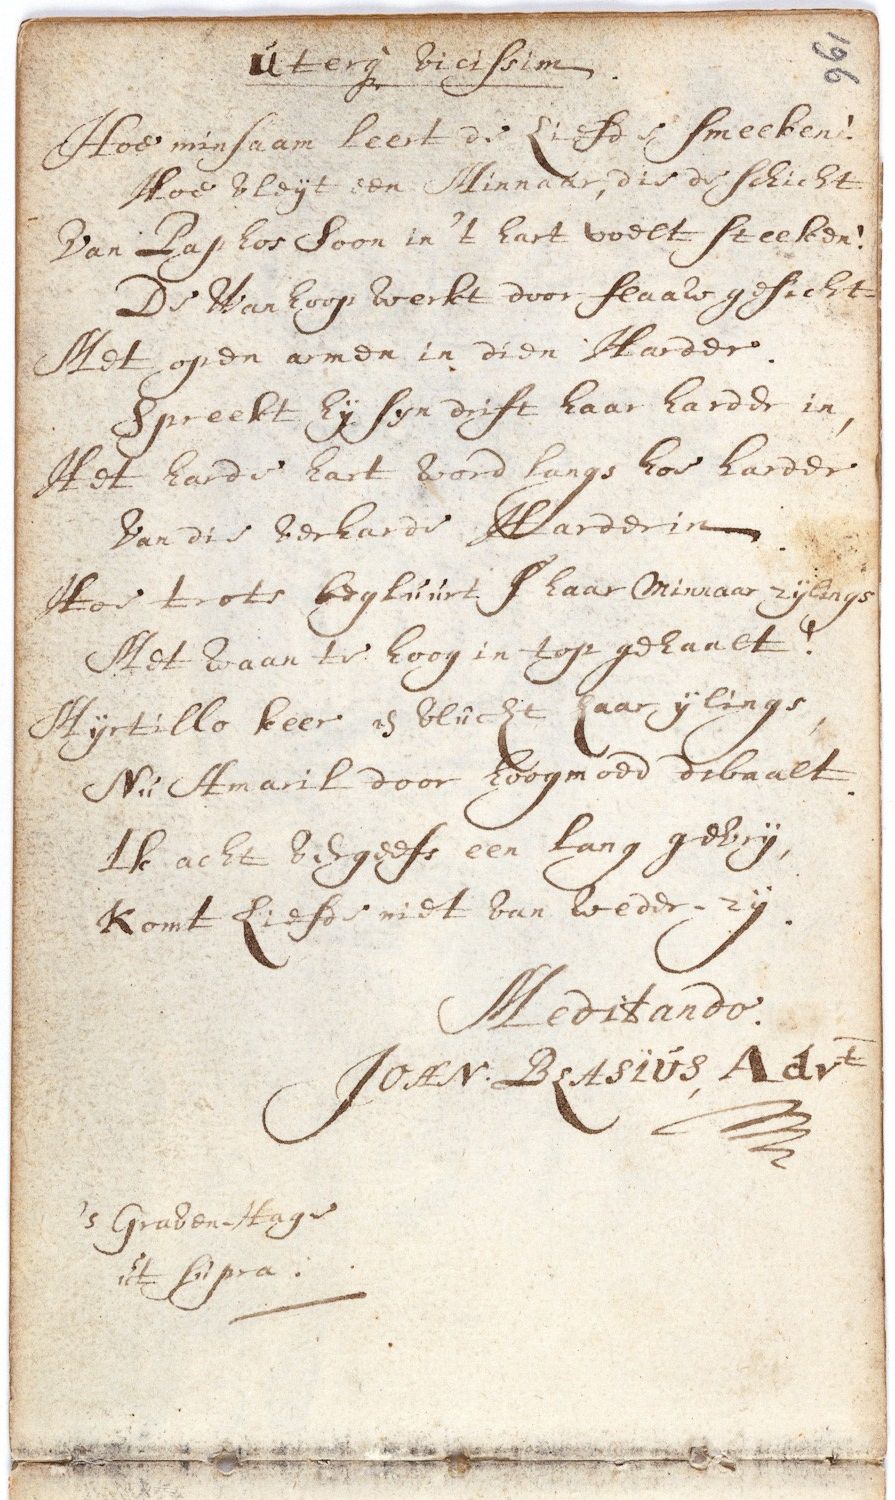 196
Uterq vicissim.
Hoe minsaam leert de Liefde smeeken!
Hoe vleyt een Minnaar, die de schicht
Van Paphos Soon in 't hart voelt steeken!
De Wanhoop werkt door flaaw gesicht
Met open armen in dien Harder.
Spreekt hÿ syn drift haar harder in,
Het harde hart word langs hoe harder
Van die verharde Harderin
Hoe trots begluurt s' haar Minnaar zylings
Met waan te hoog in top gehaalt!
Myrtillo keer en vlucht haar ylings,
Nu Amaril door hoogmoed dwaalt.
Ik acht vergeefs een lang gevrÿ,
Komt Liefde niet van weder-zÿ.
Meditando.
JOAN. BLASIUS, Advt
's Graven-Hage
ut supra.